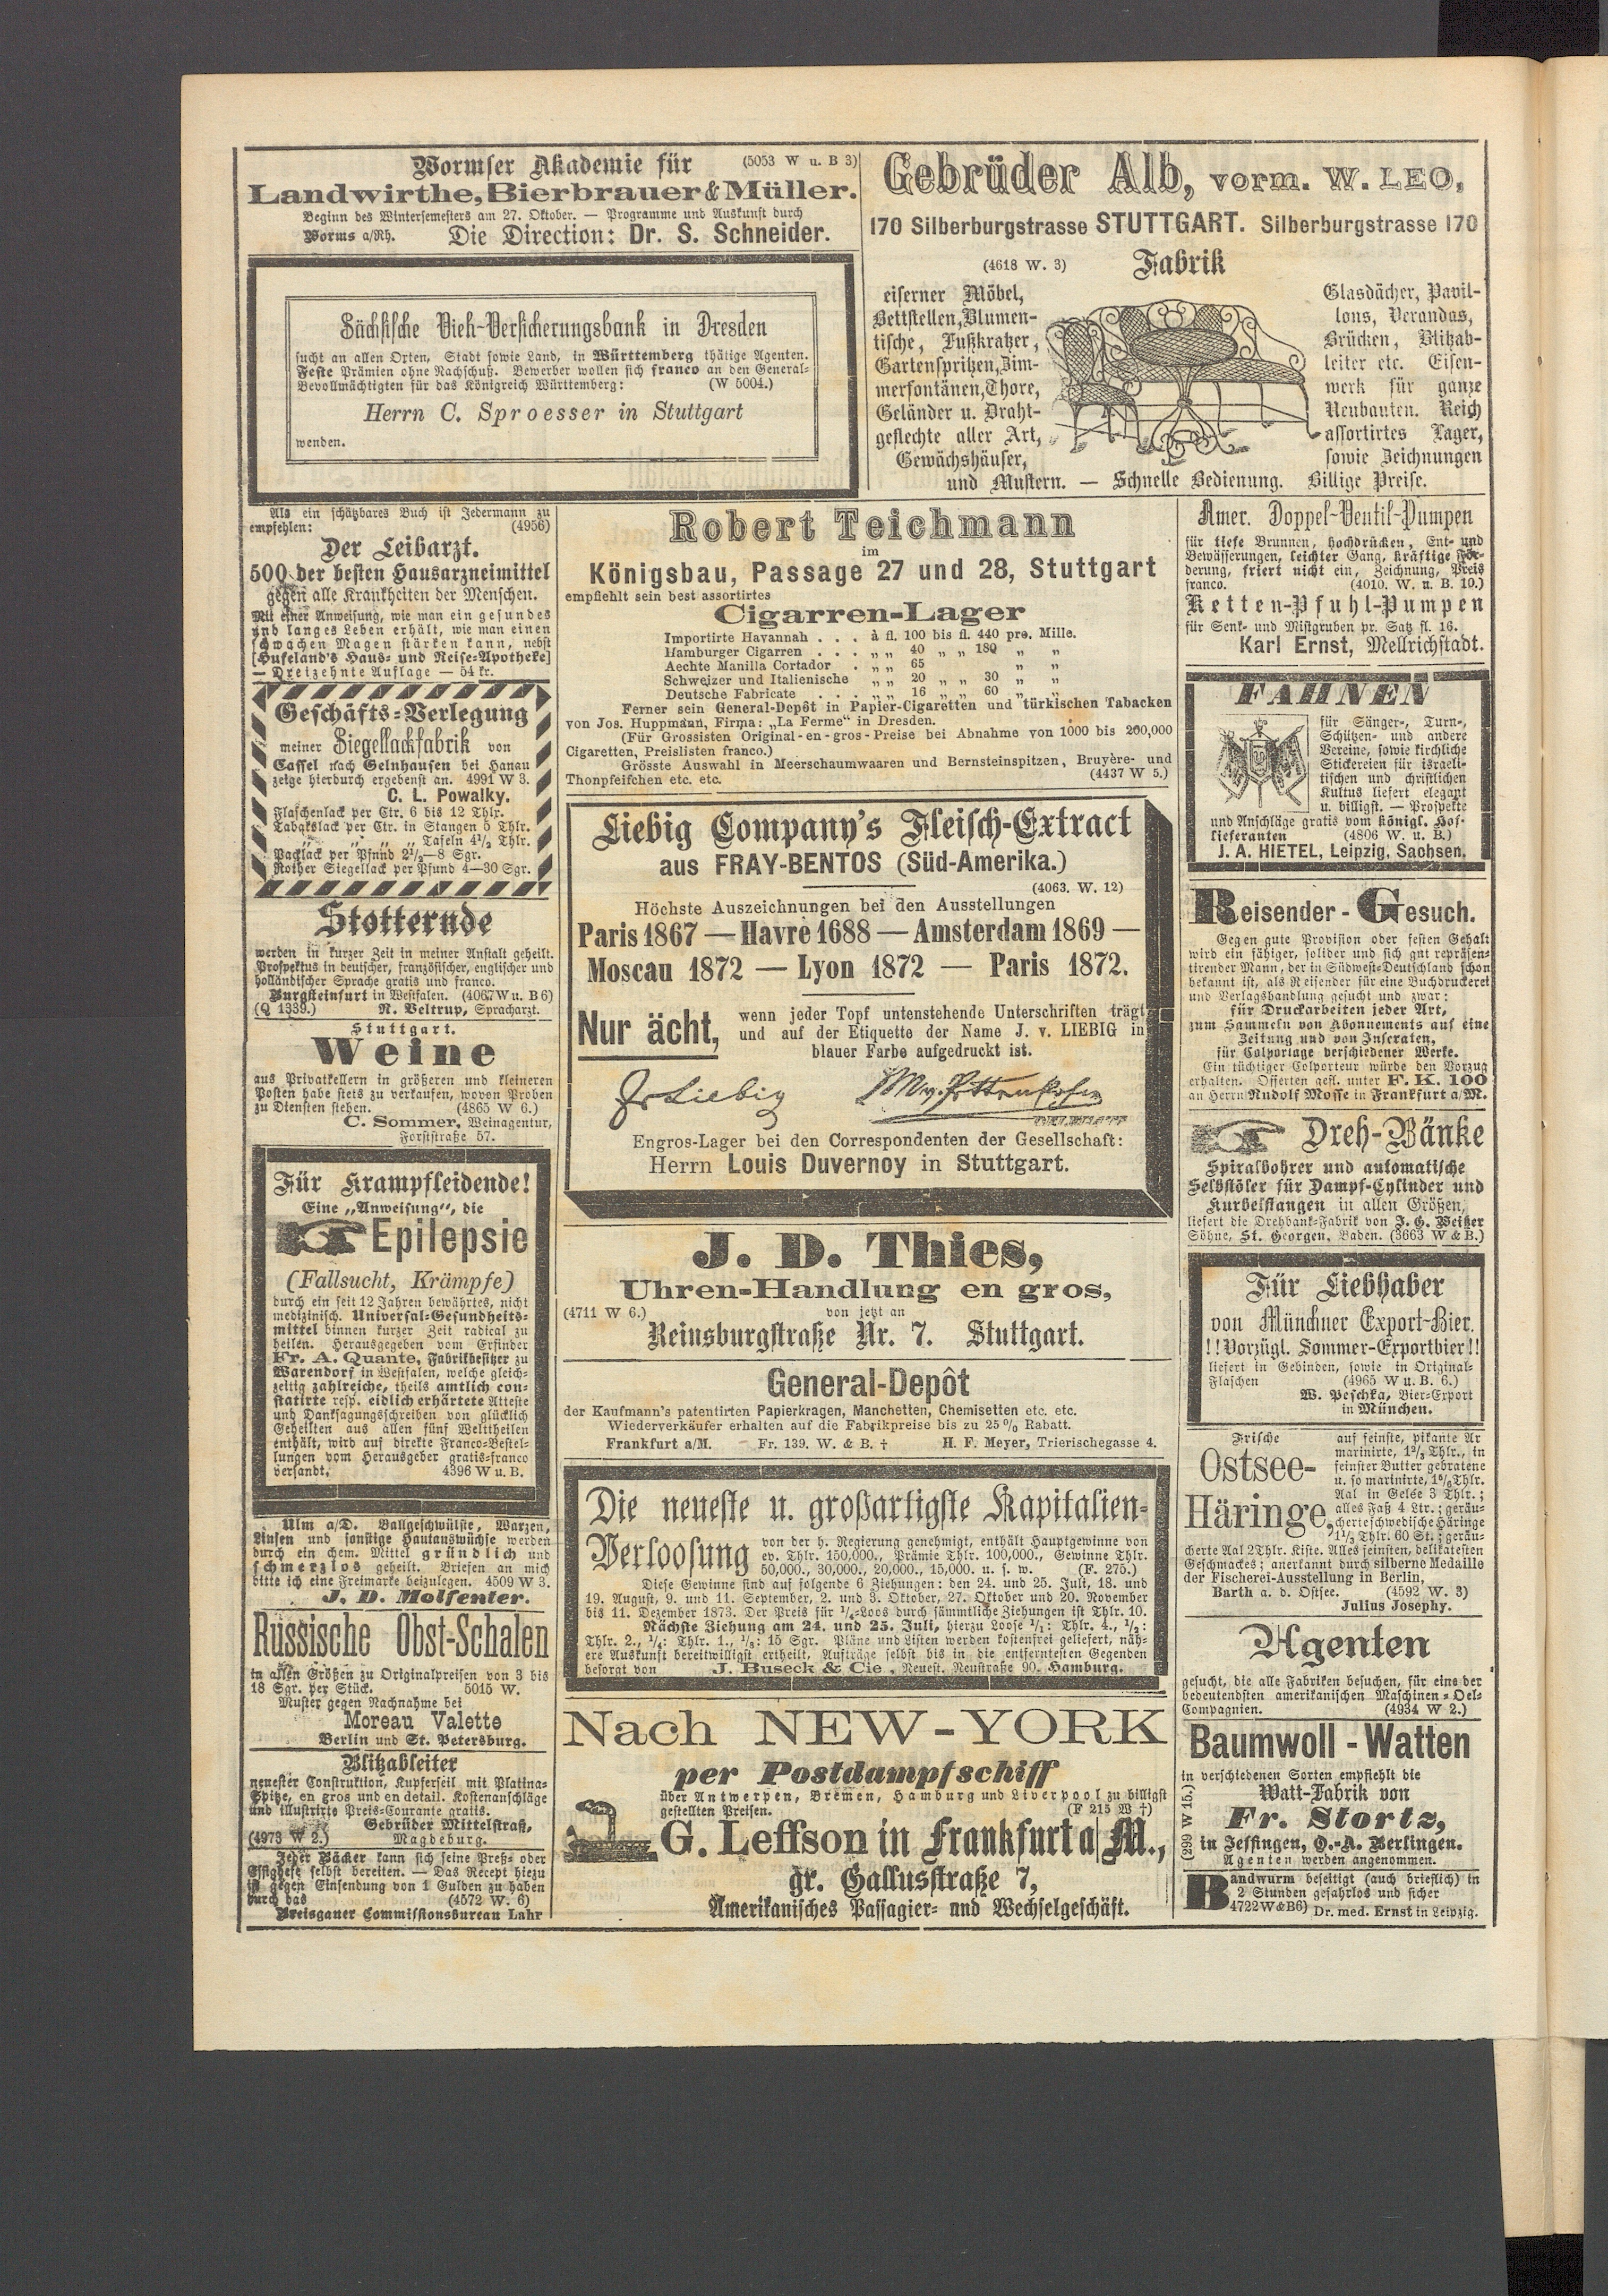 Wormser Akademie für (5053 W u. B 3)
Landwirthe, Bierbrauer & Müller.
Beginn des Wintersemesters am 27. Oktober. — Programme und Auskunft durch
Worms a/Rh. Die Direction: Dr. S. Schneider.
Sächsische Vieh-Versicherungsbank in Dresden
sucht an allen Orten, Stadt sowie Land, in Württemberg thätige Agenten.
Feste Prämien ohne Nachschuß. Bewerber wollen sich franco an den General-
Bevollmächtigten für das Königreich Württemberg: (W 5004.)
Herrn C. Sproesser in Stuttgart
wenden.
Gebrüder Alb, vorm. W. LEO,
170 Silberburgstrasse STUTTGART. Silberburgstrasse 170
(4618 W. 3) Fabrik
eiserner Möbel,
Bettstellen, Blumen-
tische, Fußkratzer,
Gartenspritzen, Zim-
merfontänen, Thore,
Geländer u. Draht-
geflechte aller Art,
Gewächshäuser,
Glasdächer, Pavil-
lons, Verandas,
Brücken, Blitzab-
leiter etc. Eisen-
werk für ganze
Neubauten. Reich
assortirtes Lager,
sowie Zeichnungen
und Mustern. — Schnelle Bedienung. Billige Preise.
Als ein schätzbares Buch ist Jedermann zu
empfehlen: (4956)
Der Leibarzt.
500 der besten Hausarzneimittel
gegen alle Krankheiten der Menschen.
Mit einer Anweisung, wie man ein gesundes
und langes Leben erhält, wie man einen
schwachen Magen stärken kann, nebst
[Hufeland's Haus- und Reise-Apotheke]
— Dreizehnte Auflage — 54 kr.
Geschäfts-Verlegung
meiner Siegellackfabrik von
Cassel nach Gelnhausen bei Hanau
zeige hierdurch ergebenst an. 4991 W 3.
C. L. Powalky.
Flaschenlack per Ctr. 6 bis 12 Thlr.
Tabakslack per Ctr. in Stangen 5 Thlr.
„ „ „ Tafeln 4½ Thlr.
Packlack per Pfund 2½—8 Sgr.
Rother Siegellack per Pfund 4—30 Sgr.
Stotternde
werden in kurzer Zeit in meiner Anstalt geheilt.
Prospektus in deutscher, französischer, englischer und
holländischer Sprache gratis und franco.
Burgsteinfurt in Westfalen. (4067 W u. B 6)
(Q 1339.) R. Veltrup, Spracharzt.
Stuttgart.
Weine
aus Privatkellern in größeren und kleineren
Posten habe stets zu verkaufen, wovon Proben
zu Diensten stehen. (4865 W 6.)
C. Sommer, Weinagentur,
Forststraße 57.
Für Krampfleidende!
Eine „Anweisung", die
Epilepsie
(Fallsucht, Krämpfe)
durch ein seit 12 Jahren bewährtes, nicht
medizinisch. Universal-Gesundheits-
mittel binnen kurzer Zeit radical zu
heilen. Herausgegeben vom Erfinder
Fr. A. Quante, Fabrikbesitzer zu
Warendorf in Westfalen, welche gleich-
zeitig zahlreiche, theils amtlich con-
statirte resp. eidlich erhärtete Atteste
und Danksagungsschreiben von glücklich
Geheilten aus allen fünf Welttheilen
enthält, wird auf direkte Franco-Bestel-
lungen vom Herausgeber gratis-franco
versandt. 4396 W u. B.
Ulm a/D. Ballgeschwülste, Warzen,
Linsen und sonstige Hautauswüchse werden
durch ein chem. Mittel gründlich und
schmerzlos geheilt. Briefen an mich
bitte ich eine Freimarke beizulegen. 4509 W 3.
J. D. Molfenter.
Russische Obst-Schalen
in allen Größen zu Originalpreisen von 3 bis
18 Sgr. per Stück. 5015 W.
Muster gegen Nachnahme bei
Moreau Valette
Berlin und St. Petersburg.
Blitzableiter
neuester Construktion, Kupferseil mit Platina-
Spitze, en gros und en detail. Kostenanschläge
und illustrirte Preis-Courante gratis.
Gebrüder Mittelstraß,
(4973 W 2.) Magdeburg.
Jeder Bäcker kann sich seine Preß- oder
Essighefe selbst bereiten. — Das Recept hiezu
ist gegen Einsendung von 1 Gulden zu haben
durch das (4572 W. 6)
Breisgauer Commissionsbureau Lahr
Robert Teichmann
im
Königsbau, Passage 27 und 28, Stuttgart
empfiehlt sein best assortirtes
Cigarren-Lager
Importirte Havannah . . . à fl. 100 bis fl. 440 pro. Mille.
Hamburger Cigarren . . . „ „ 40 „ „ 180 „ „
Aechte Manilla Cortador . „ „ 65 „ „
Schweizer und Italienische „ „ 20 „ „ 30 „ „
Deutsche Fabricate . . . „ „ 16 „ „ 60 „ „
Ferner sein General-Depôt in Papier-Cigaretten und türkischen Tabacken
von Jos. Huppmann, Firma: „La Ferme" in Dresden.
(Für Grossisten Original-en-gros-Preise bei Abnahme von 1000 bis 200,000
Cigaretten, Preislisten franco.)
Grösste Auswahl in Meerschaumwaaren und Bernsteinspitzen, Bruyère- und
Thonpfeifchen etc. etc. (4437 W 5.)
Liebig Company's Fleisch-Extract
aus FRAY-BENTOS (Süd-Amerika.)
(4063. W. 12)
Höchste Auszeichnungen bei den Ausstellungen
Paris 1867 — Havre 1688 — Amsterdam 1869 —
Moscau 1872 — Lyon 1872 — Paris 1872.
Nur ächt,
wenn jeder Topf untenstehende Unterschriften trägt
und auf der Etiquette der Name J. v. LIEBIG in
blauer Farbe aufgedruckt ist.
Liebig M. v. Pettenkofer
Engros-Lager bei den Correspondenten der Gesellschaft:
Herrn Louis Duvernoy in Stuttgart.
J. D. Thies,
Uhren-Handlung en gros,
(4711 W 6.) von jetzt an
Reinsburgstraße Nr. 7. Stuttgart.
General-Depôt
der Kaufmann's patentirten Papierkragen, Manchetten, Chemisetten etc. etc.
Wiederverkäufer erhalten auf die Fabrikpreise bis zu 25% Rabatt.
Frankfurt a/M. Fr. 139. W. & B. † H. F. Meyer, Trierischegasse 4.
Die neueste u. großartigste Kapitalien-
Verloosung
von der h. Regierung genehmigt, enthält Hauptgewinne von
ev. Thlr. 150,000., Prämie Thlr. 100,000., Gewinne Thlr.
50,000., 30,000., 20,000., 15,000. u. s. w. (F. 275.)
Diese Gewinne sind auf folgende 6 Ziehungen: den 24. und 25. Juli, 18. und
19. August, 9. und 11. September, 2. und 3. Oktober, 27. Oktober und 20. November
bis 11. Dezember 1873. Der Preis für ¼-Loos durch sämmtliche Ziehungen ist Thlr. 10.
Nächste Ziehung am 24. und 25. Juli, hierzu Loose ¹/₁: Thlr. 4., ½:
Thlr. 2., ¼: Thlr. 1., ⅛: 15 Sgr. Pläne und Listen werden kostenfrei geliefert, näh-
ere Auskunft bereitwilligst ertheilt, Aufträge selbst bis in die entferntesten Gegenden
besorgt von J. Buseck & Cie, Neuest. Neustraße 90. Hamburg.
Nach NEW-YORK
per Postdampfschiff
über Antwerpen, Bremen, Hamburg und Liverpool zu billigst
gestellten Preisen. (F 215 W †)
G. Leffson in Frankfurt a/M.,
gr. Gallusstraße 7,
Amerikanisches Passagier- und Wechselgeschäft.
Amer. Doppel-Ventil-Pumpen
für tiefe Brunnen, hochdrücken, Ent- und
Bewässerungen, leichter Gang, kräftige För-
derung, friert nicht ein, Zeichnung, Preis
franco. (4010. W. u. B. 19.)
Ketten-Pfuhl-Pumpen
für Senk- und Mistgruben pr. Satz fl. 16.
Karl Ernst, Mellrichstadt.
FAHNEN
für Sänger-, Turn-,
Schützen- und andere
Vereine, sowie kirchliche
Stickereien für israeli-
tischen und christlichen
Kultus liefert elegant
u. billigst. — Prospekte
und Anschläge gratis vom Königl. Hof-
lieferanten (4806 W. u. B.)
J. A. HIETEL, Leipzig, Sachsen.
Reisender-Gesuch.
Gegen gute Provision oder festen Gehalt
wird ein fähiger, solider und sich gut repräsen-
tirender Mann, der in Südwest-Deutschland schon
bekannt ist, als Reisender für eine Buchdruckerei
und Verlagshandlung gesucht und zwar:
für Druckarbeiten jeder Art,
zum Sammeln von Abonnements auf eine
Zeitung und von Inseraten,
für Colportage verschiedener Werke.
Ein tüchtiger Colporteur würde den Vorzug
erhalten. Offerten gefl. unter F. K. 100
an Herrn Rudolf Mosse in Frankfurt a/M.
Dreh-Bänke
Spiralbohrer und automatische
Selbstöler für Dampf-Cylinder und
Kurbelstangen in allen Größen,
liefert die Drehbank-Fabrik von J. G. Weißer
Söhne, St. Georgen, Baden. (3663 W & B.)
Für Liebhaber
von Münchner Export-Bier.
!!Vorzügl. Sommer-Exportbier!!
liefert in Gebinden, sowie in Original-
Flaschen (4965 W u. B. 6.)
W. Peschka, Bier-Export
in München.
Frische
Ostsee-
Häringe,
auf feinste, pikante Ar
marinirte, 1⅔ Thlr., in
feinster Butter gebratene
u. so marinirte, 1⅚ Thlr.
Aal in Gelée 3 Thlr.;
alles Faß 4 Ltr.; geräu-
cherte schwedische Häringe
1⅓ Thlr. 60 St.; geräu-
cherte Aal 2 Thlr. Kiste. Alles feinsten, delikatesten
Geschmackes; anerkannt durch silberne Medaille
der Fischerei-Ausstellung in Berlin,
Barth a. d. Ostsee. (4592 W. 3)
Julius Josephy.
Agenten
gesucht, die alle Fabriken besuchen, für eine der
bedeutendsten amerikanischen Maschinen-Oel-
Compagnien. (4934 W 2.)
Baumwoll-Watten
in verschiedenen Sorten empfiehlt die
Watt-Fabrik von
Fr. Stortz,
in Jessingen, O.-A. Berlingen.
Agenten werden angenommen.
(299 W 15.)
Bandwurm beseitigt (auch brieflich) in
2 Stunden gefahrlos und sicher
4722 W & B 6) Dr. med. Ernst in Leipzig.